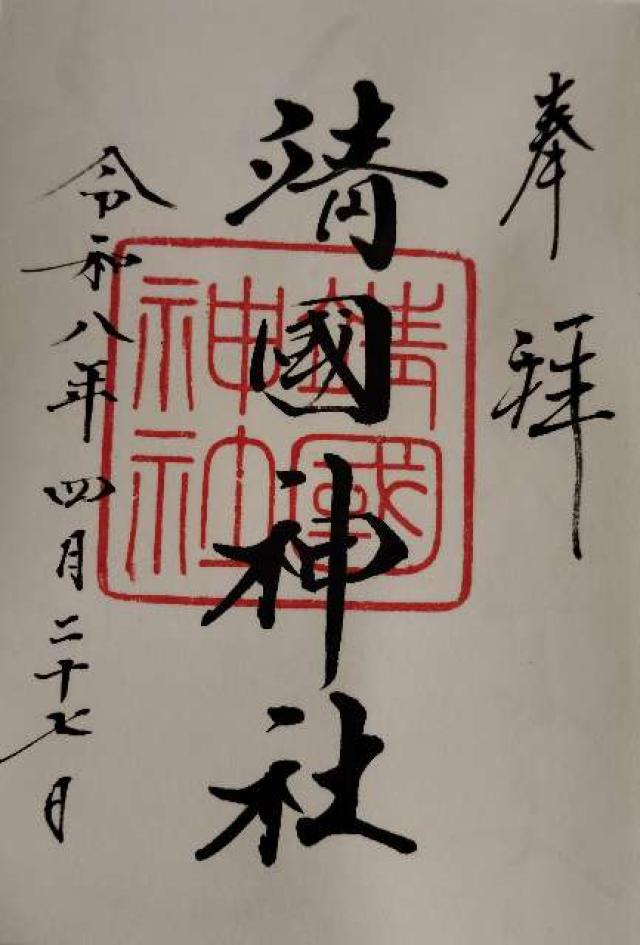 奉拝
靖國神社
靖國神社
令和八年四月二十七日